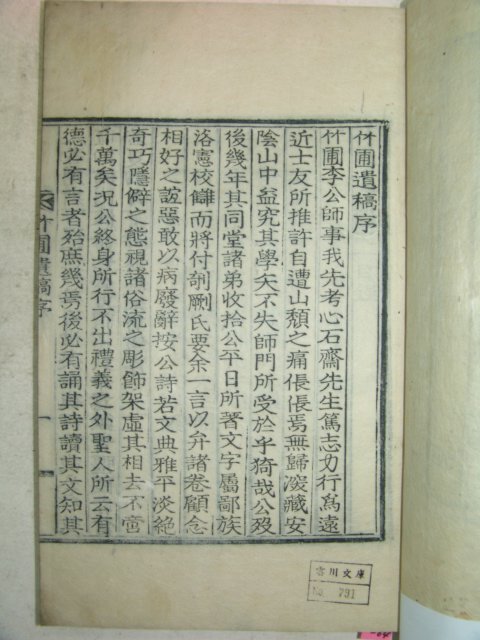 竹圃遺稿序
竹圃李公師事我先考心石齋先生篤志力行爲遠
近士友所推許自遭山頹之痛倀倀焉無歸深藏安
陰山中益究其學矢不失師門所受於乎猗哉公歿
後幾年其同堂諸弟收拾公平日所著文字屬鄙族
洛憲校讎而將付剞劂氏要余一言以弁諸卷顧念
相好之誼惡敢以病廢辭按公詩若文典雅平淡絶
奇巧隱僻之態視諸俗流之彫飾架虛其相去不啻
千萬矣況公終身所行不出禮義之外聖人所云有
德必有言者殆庶幾焉後必有誦其詩讀其文知其
竹圃遺稿序
一
雲川文庫
No. 791